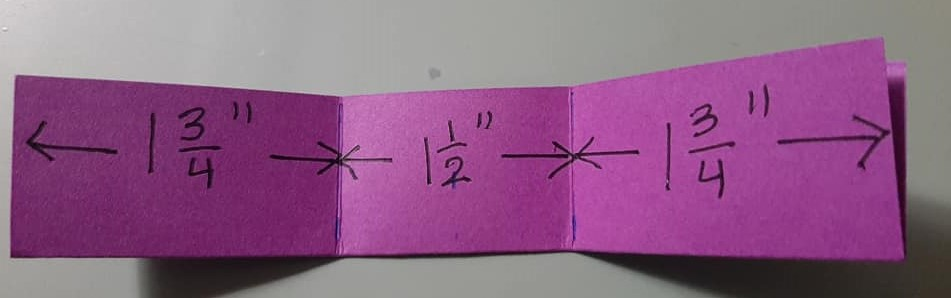 1 3/4" 1 1/2" 1 3/4"